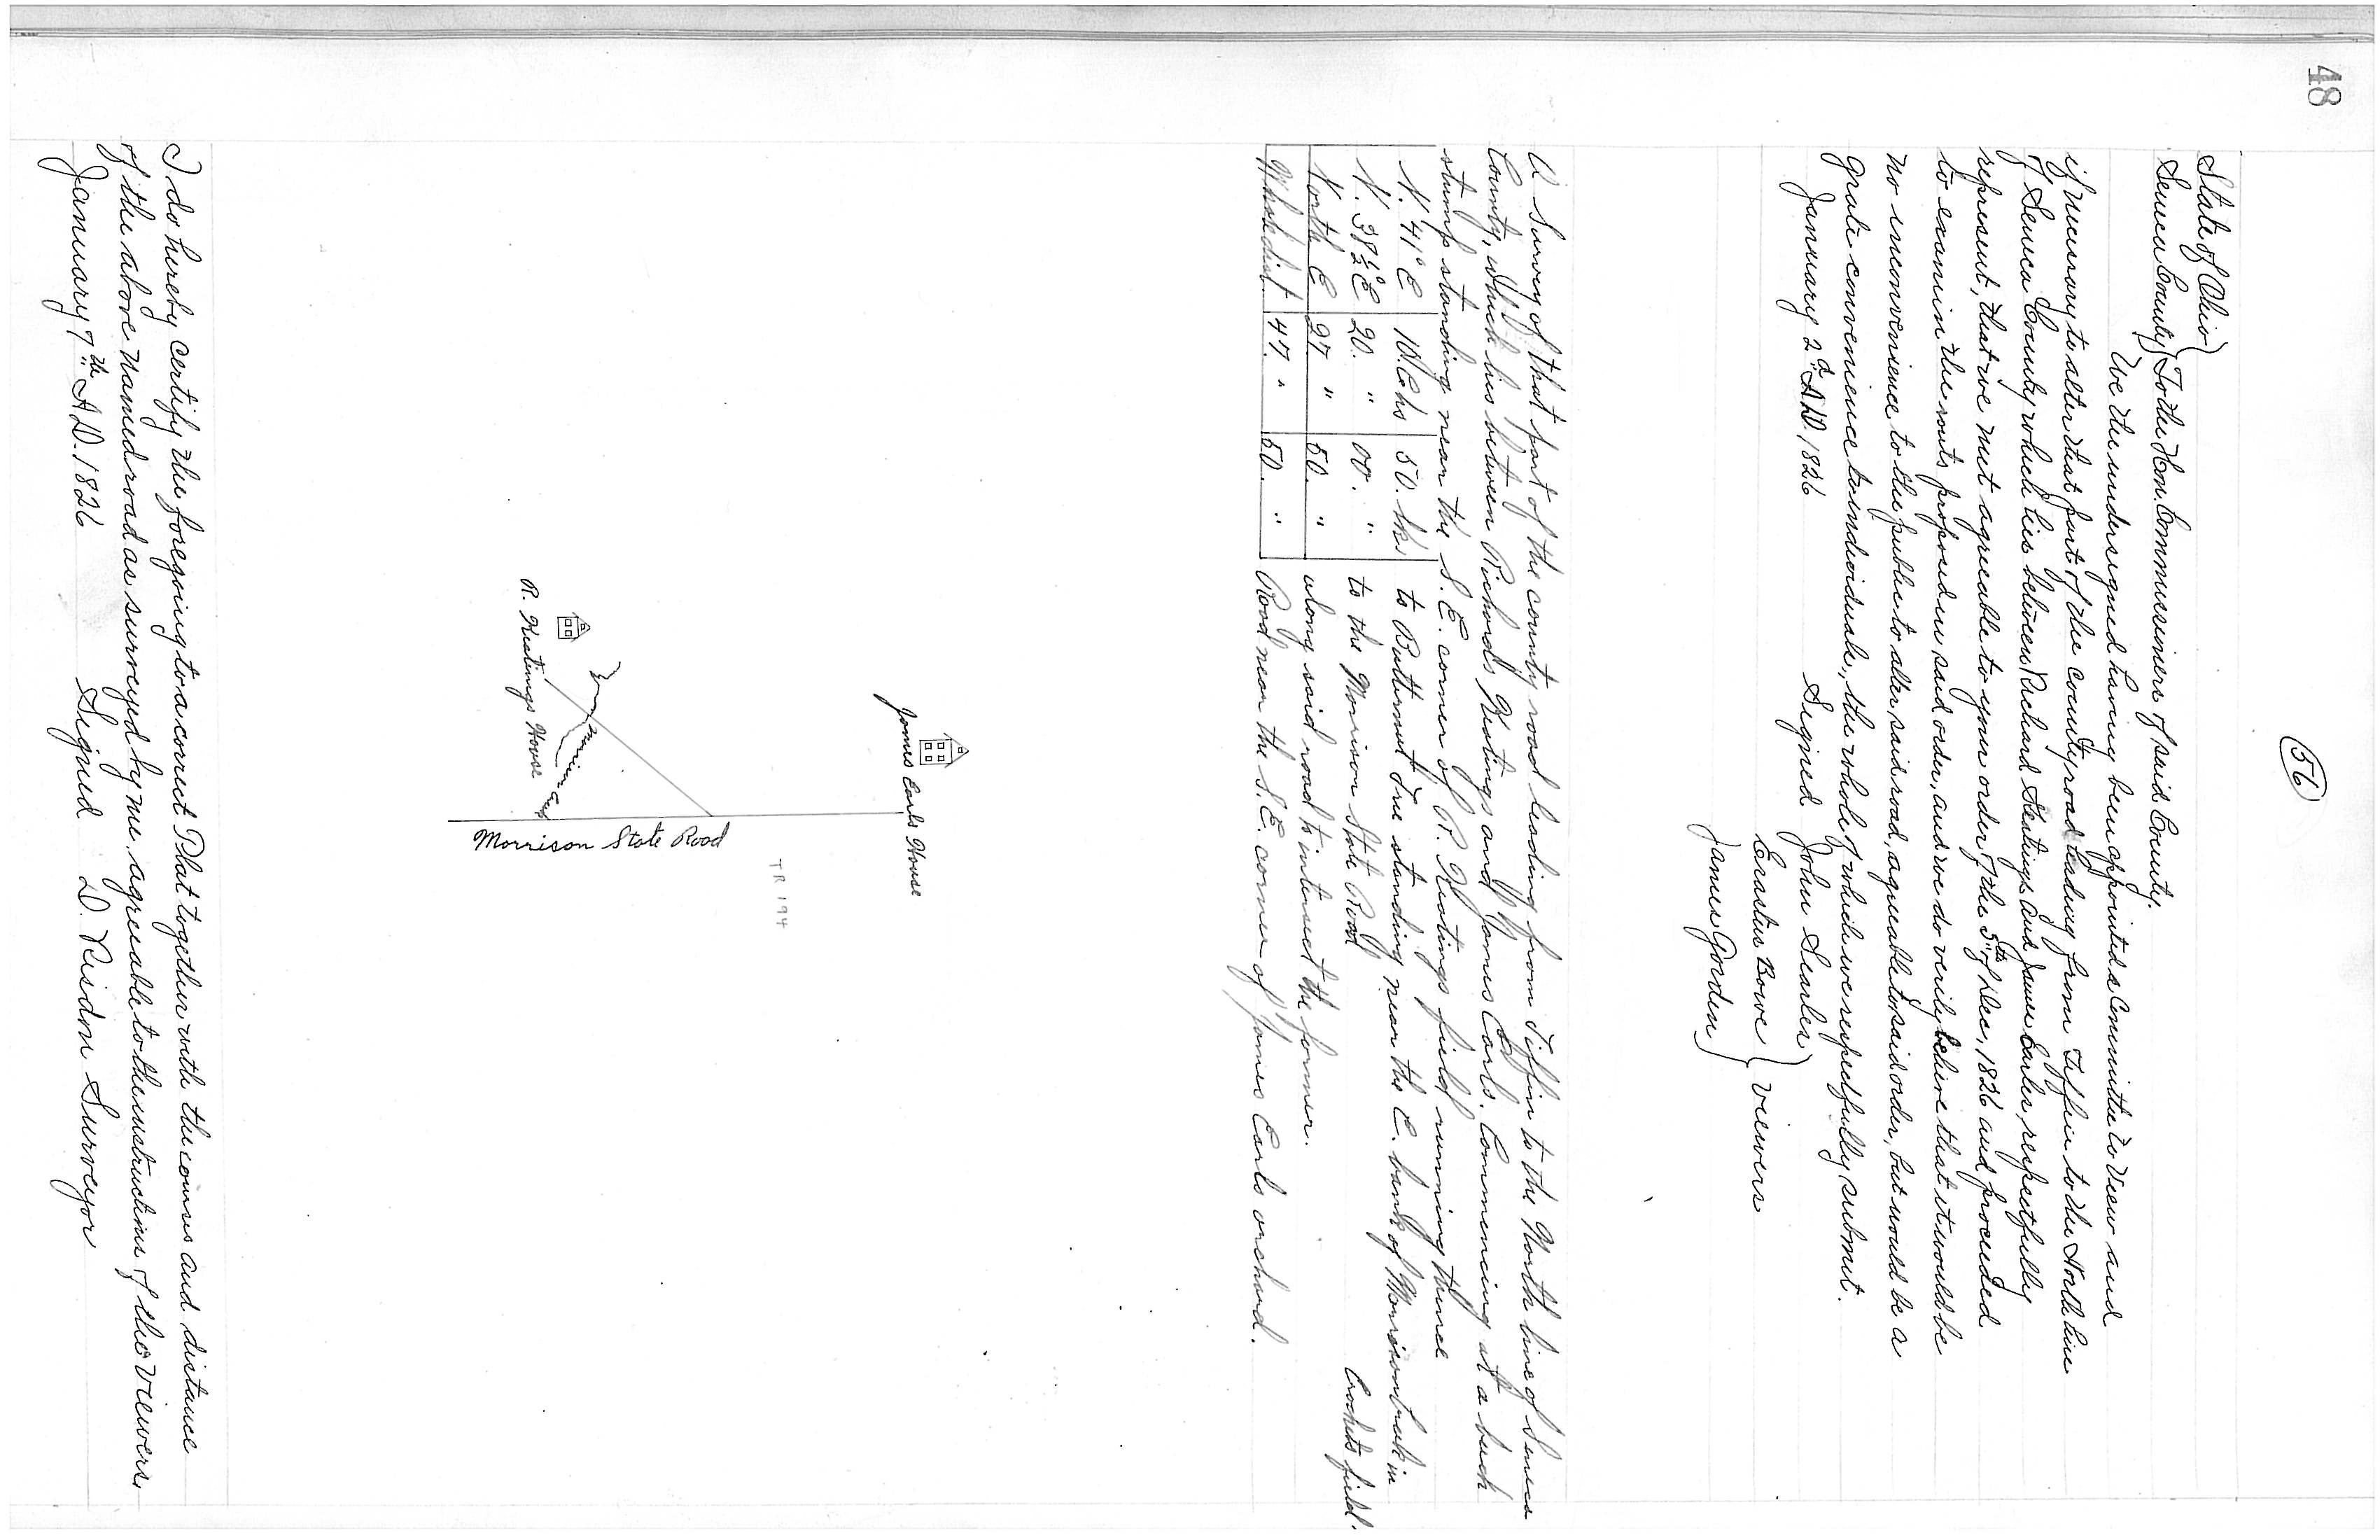 48
(56)
State of Ohio }
Seneca County } To the Hon. Commissiners of said County.
We the undersigned having been appointed a Committee to view and
if necessary to alter that part of the county road leading from Tiffin to the North line
of Seneca County which lies between Richard Keatings and James Earles, respectfully
represent, that we met agreeable to your order of the 5th of Dec, 1826 and proceeded
to examin the routs proposed in said order, and we do verily beleive that it would be
no inconvenience to the public to alter said road, agreeable to said order, but would be a
grate convenience to individuals, the whole of which we respectfully submit.
January 2d A.D. 1826 Signed John Searles }
Erastus Bowe } Viewers
James Gorden }
A Survey of that part of the county road leading from Tiffin to the North line of Seneca
County, which lies between Richards Keatings and James Earls. Commencing at a beech
stump standing near the S.E. corner of R. Keatings field running thence
N. 41° E 10. Chs 50. lks to Butternut Tree standing near the E. bank of Morrison Creek in
Crockets field.
N. 38½° E 20. " 00. " to the Morrison State Road
North E 27 " 50. " along said road to intersect the former.
Whole dist 47. " 50. " Road near the S.E. corner of James Earls orchard.
James Earls House
TR 194
Morrison State Road
R. Keatings House
I do hereby certify the foregoing to a correct Plat together with the courses and distance
of the above named road as surveyed by me, agreeable to the instructions of the viewers.
January 7th A.D. 1826 Signed D. Risdon Surveyor